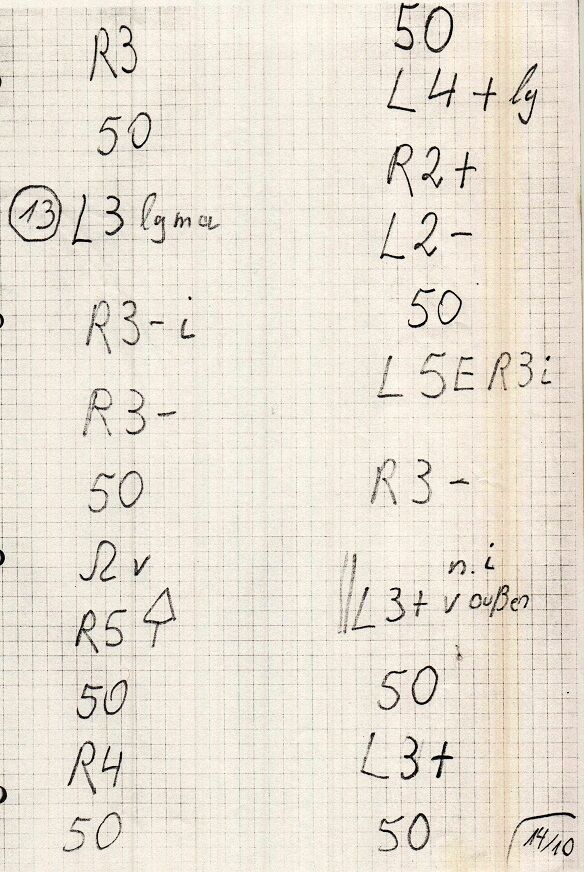 R3
50
13 L3 lgma
R3-i
R3-
50
Ω v
R5
50
R4
50
50
L4+ lg
R2+
L2-
50
L5E R3i
R3-
n.i
L3+ v außen
50
L3+
50
14/10